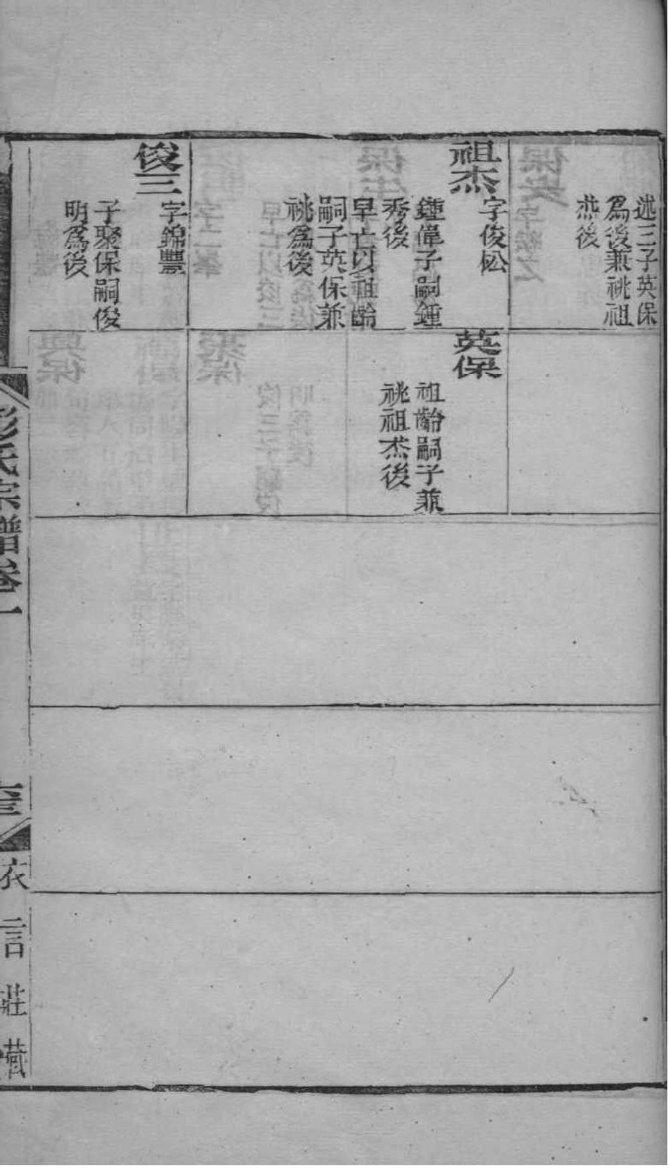 述三子英保
為後兼祧祖
杰後
祖杰
字俊松
鍾偉子嗣鍾
秀後
早亡以祖齡
嗣子英保兼
祧為後
俊三
字錦豐
子聚保嗣俊
明為後
英保
祖齡嗣子兼
祧祖杰後
彭氏宗譜卷一
衣言莊藏